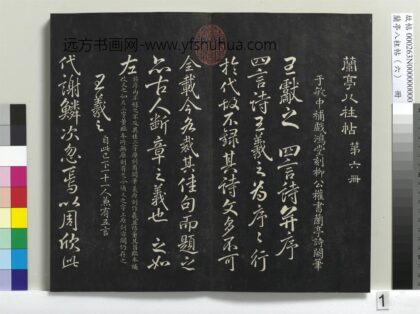 远方书画网-www.yfshuhua.com
故帖 000263N00000000
蘭亭八柱帖（六） 冊
蘭亭八柱帖 第六冊
于敏中補戲鴻堂刻柳公權書蘭亭詩闕筆
王獻之 四言詩并序
四言詩王羲之為序序行
於代故不録其詩文多不可
全載今各裁其佳句而題之
亦古人斷章之義也 之如
左
王羲之 自此已下十一人兼有五言
代謝鱗次忽焉以周欣此
1